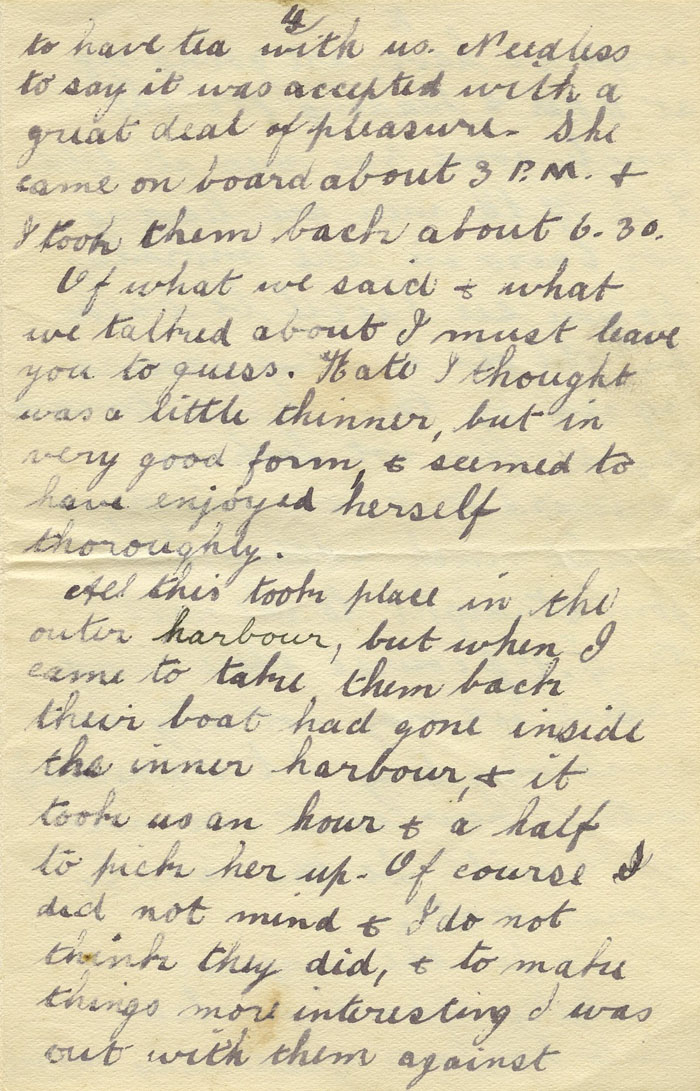 4
to have tea with us. Needless
to say it was accepted with a
great deal of pleasure. She
came on board about 3 P.M. &
I took them back about 6.30.
Of what we said & what
we talked about I must leave
you to guess. Kate I thought
was a little thinner, but in
very good form, & seemed to
have enjoyed herself
thoroughly.
All this took place in the
outer harbour, but when I
came to take them back
their boat had gone inside
the inner harbour, & it
took us an hour & a half
to pick her up. Of course I
did not mind & I do not
think they did, & to make
things more interesting I was
out with them against